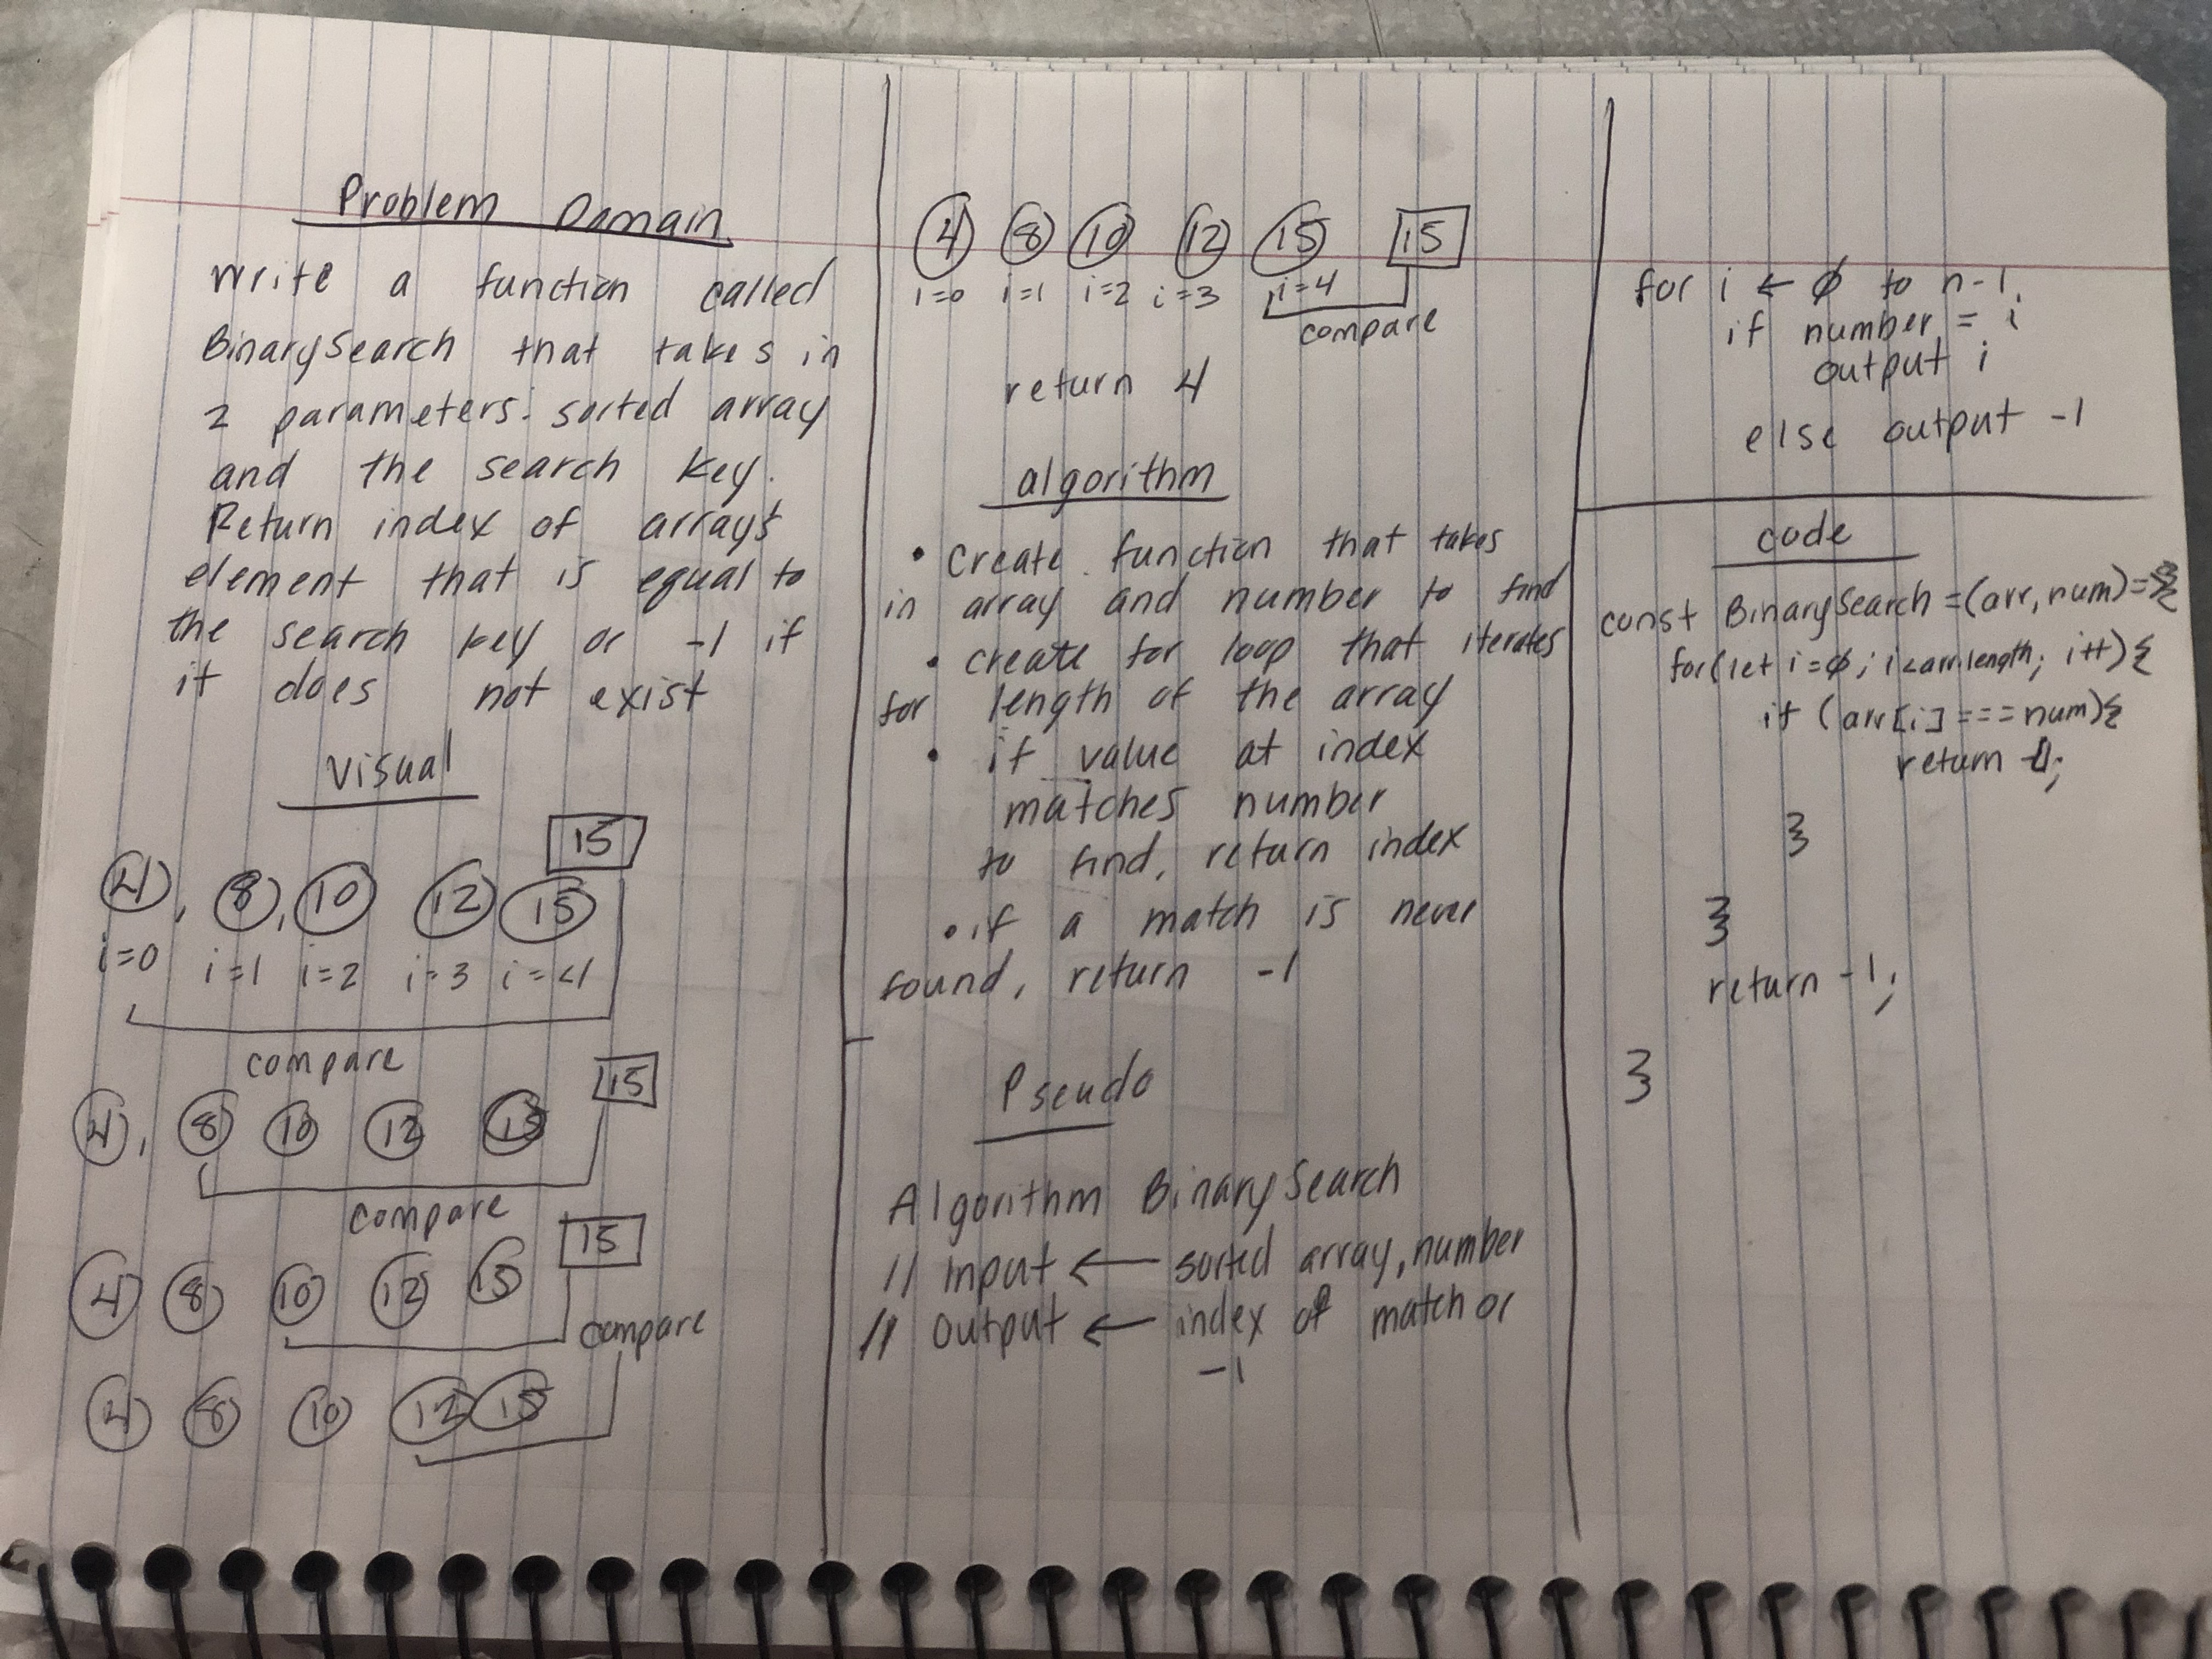 Problem Domain
Write a function called
BinarySearch that takes in
2 parameters: sorted array
and the search key.
Return index of array's
element that is equal to
the search key or -1 if
it does not exist
Visual
15
4, 8, 10 12 15
i=0 i=1 i=2 i=3 i=4
compare
15
4, 8 10 12 15
compare
15
4 8 10 12 15
compare
4 8 10 12 15
4 8 10 12 15 15
i=0 i=1 i=2 i=3 i=4
compare
return 4
algorithm
• create function that takes
in array and number to find
• create for loop that iterates
for length of the array
• if value at index
matches number
to find, return index
• if a match is never
found, return -1
Pseudo
Algorithm BinarySearch
// Input ← sorted array, number
// Output ← index of match or
-1
for i ← 0 to n-1
if number = i
output i
else output -1
code
const BinarySearch = (arr, num) => {
for(let i=0; i<arr.length; i++){
if (arr[i] === num){
return
}
}
return -1;
}